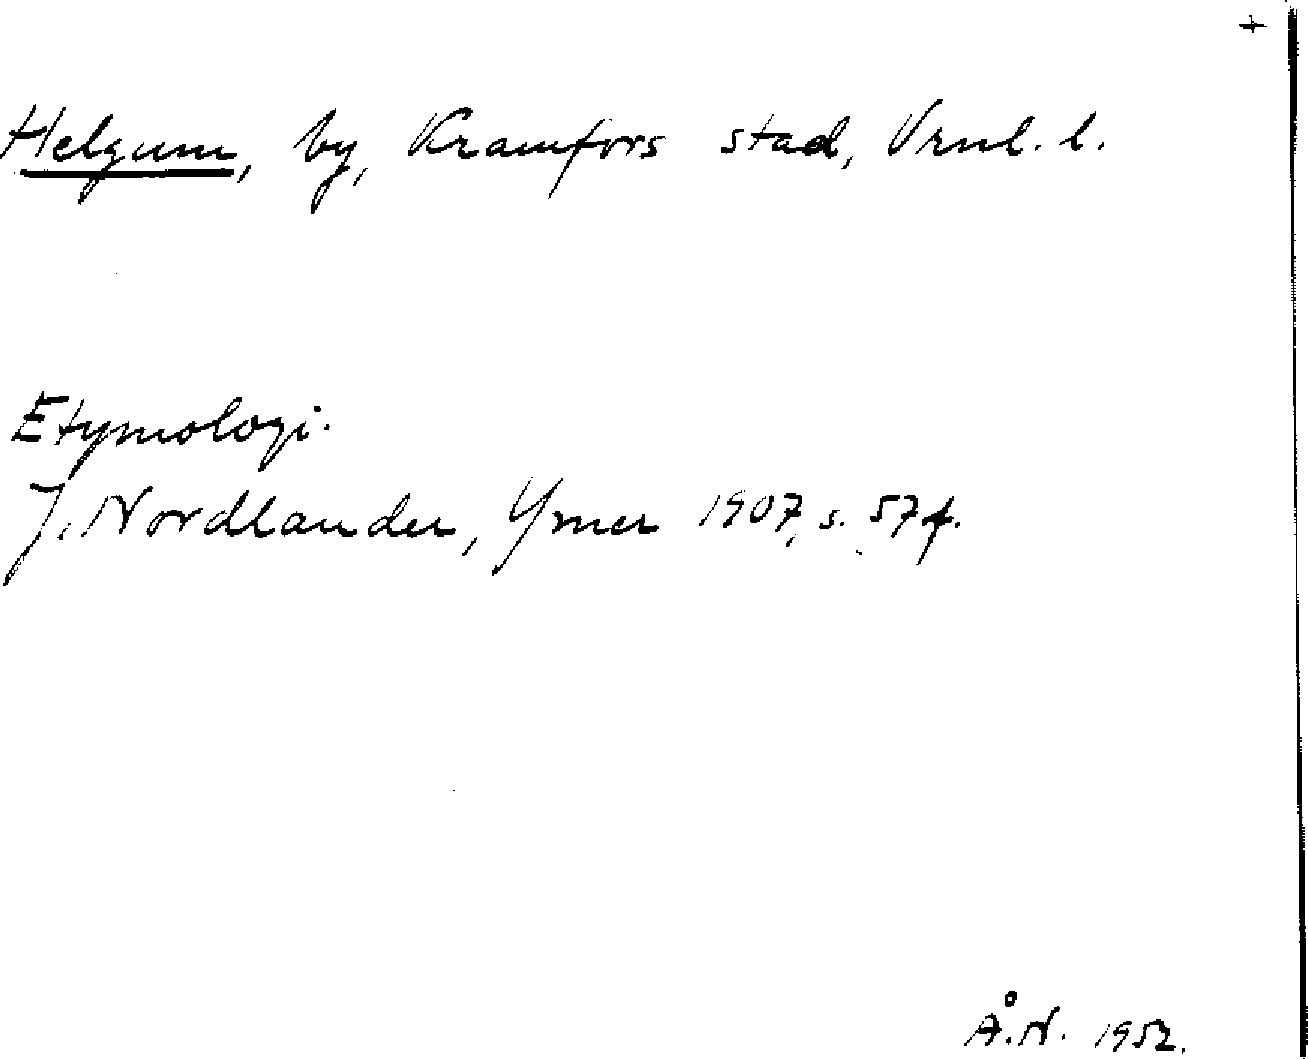 +
Helgum, by, Kramfors stad, Vrnl. l.
Etymologi.
J. Nordlander, Ymer 1907, s. 57 f.
Å.N. 1952.